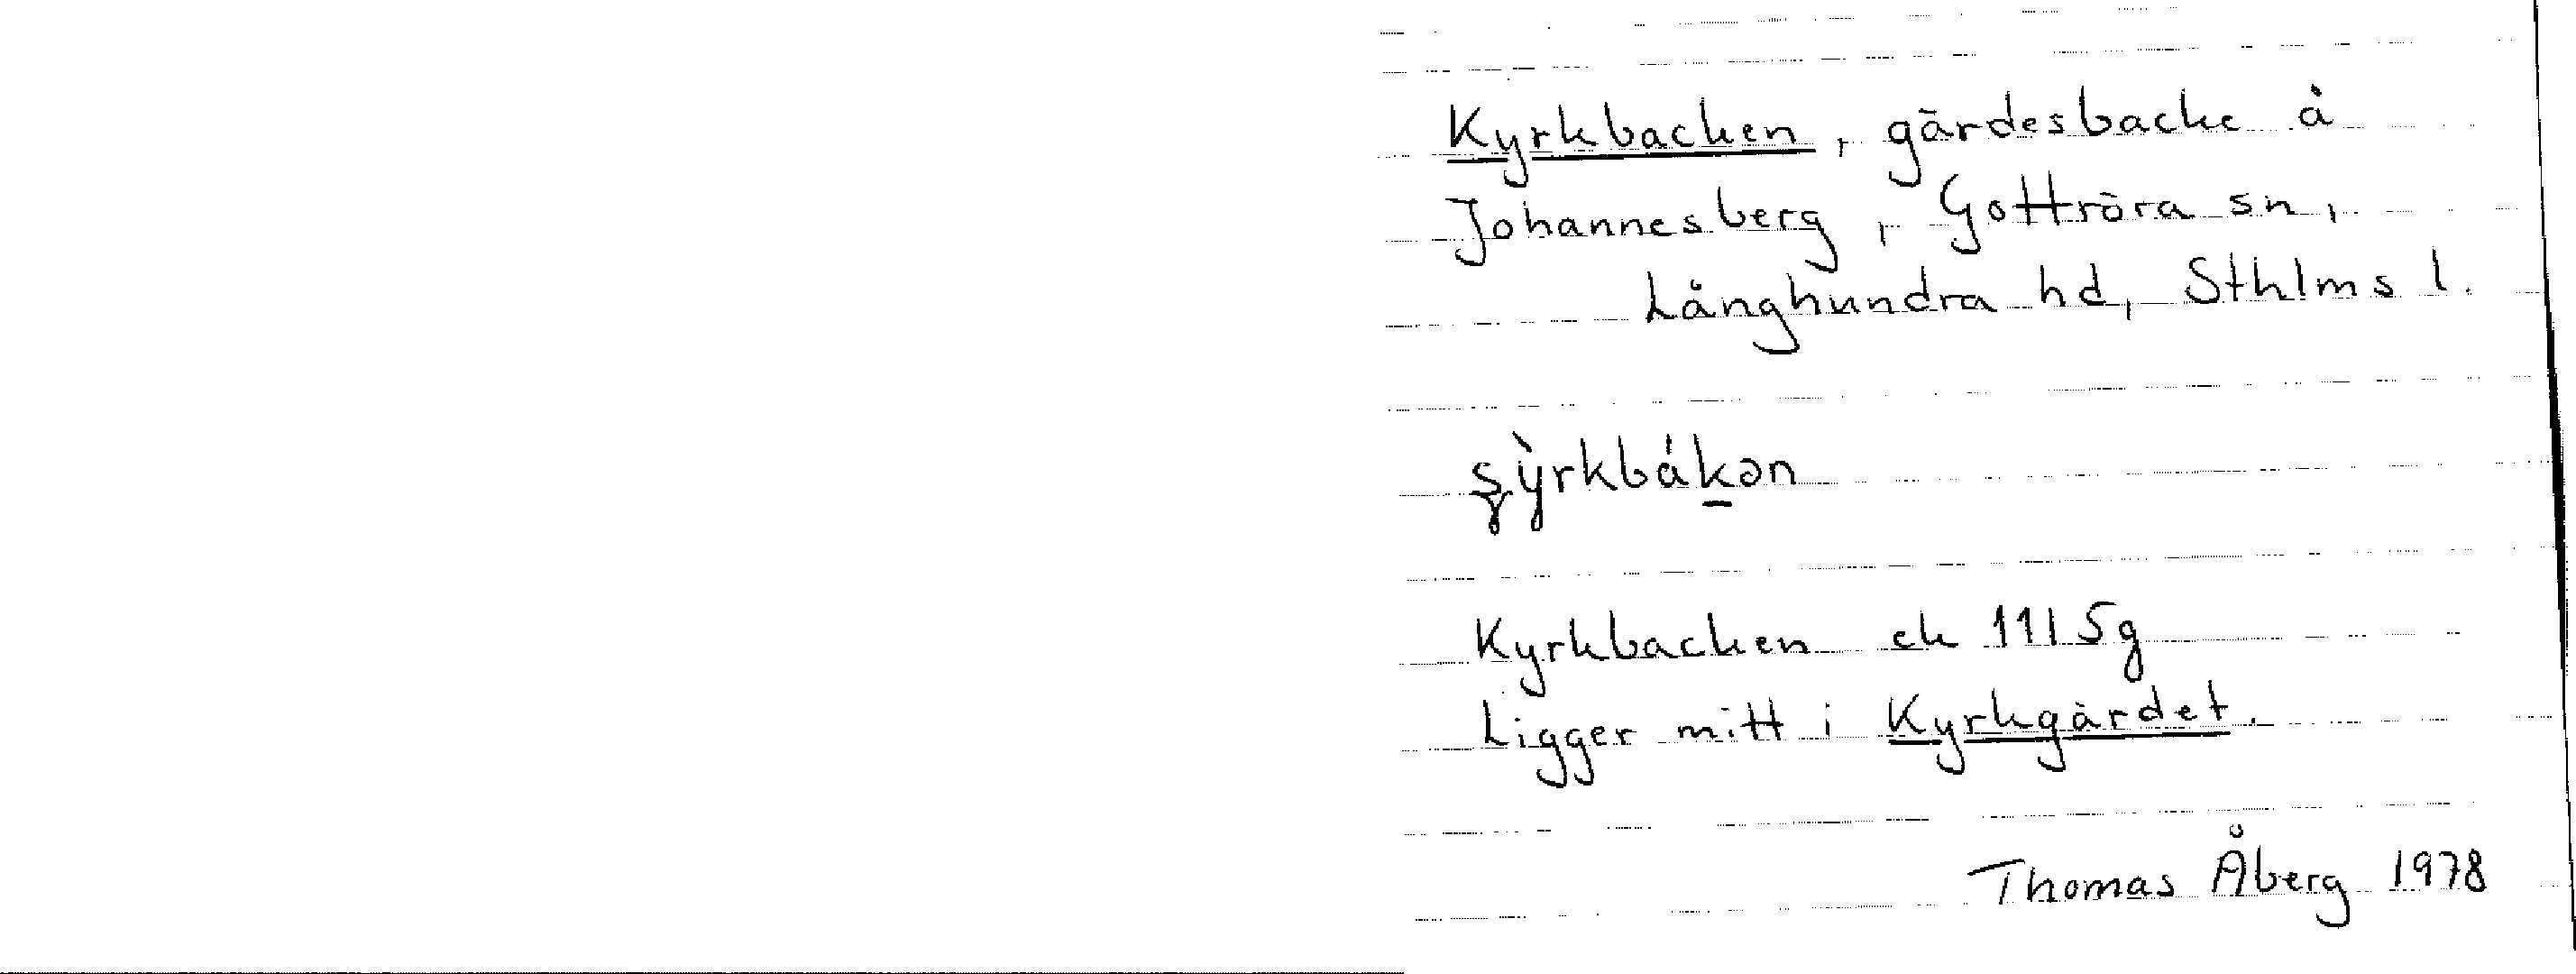 Kyrkbacken, gärdesbacke å
Johannesberg, Gottröra sn,
Långhundra hd, Sthlms l.
ȿỳrkbákən
Kyrkbacken ek 11I5g
Ligger mitt i Kyrkgärdet.
Thomas Åberg 1978